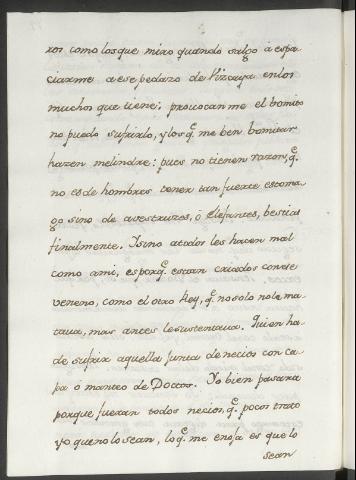 ros como los que miro quando salgo á espa
ciarme a ese pedazo de Vizcaya en los
muchos que tiene: provocan me el bomito
no puedo sufrirlo, y los q.e me ben bomitar
hazen melindre: pues no tienen razon, q.e
no es de hombres tener tan fuerte estoma
go sino de avestruzes, ó Elefantes, bestias
finalmente. Y sino a todos les hacen mal
como a mi, es porq.e estan criados con este
veneno, como el otro Rey, q.e no solo no le ma
tava, mas antes le sustentava. Quien ha
de sufrir aquella junta de necios con ca
pa ó manteo de Doctor. Yo bien pasara
porque fueran todos necios, q.e pocos trato
yo que no lo sean, lo q.e me enoja es que lo
sean